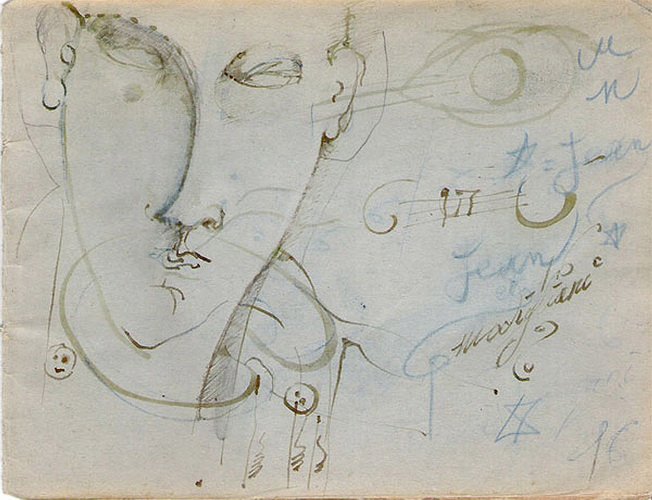 M
N
✡ = Jean
Jean
modigliani
16